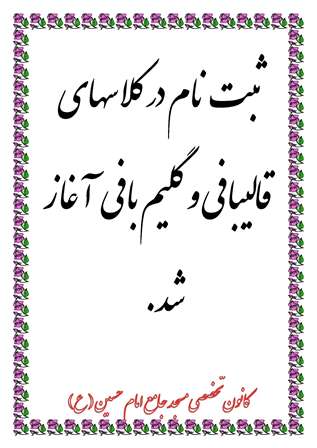 ثبت نام در کلاسهای
قالیبافی و گلیم بافی آغاز
شد.
کانون تخصصی مسجد جامع امام حسین (ع)